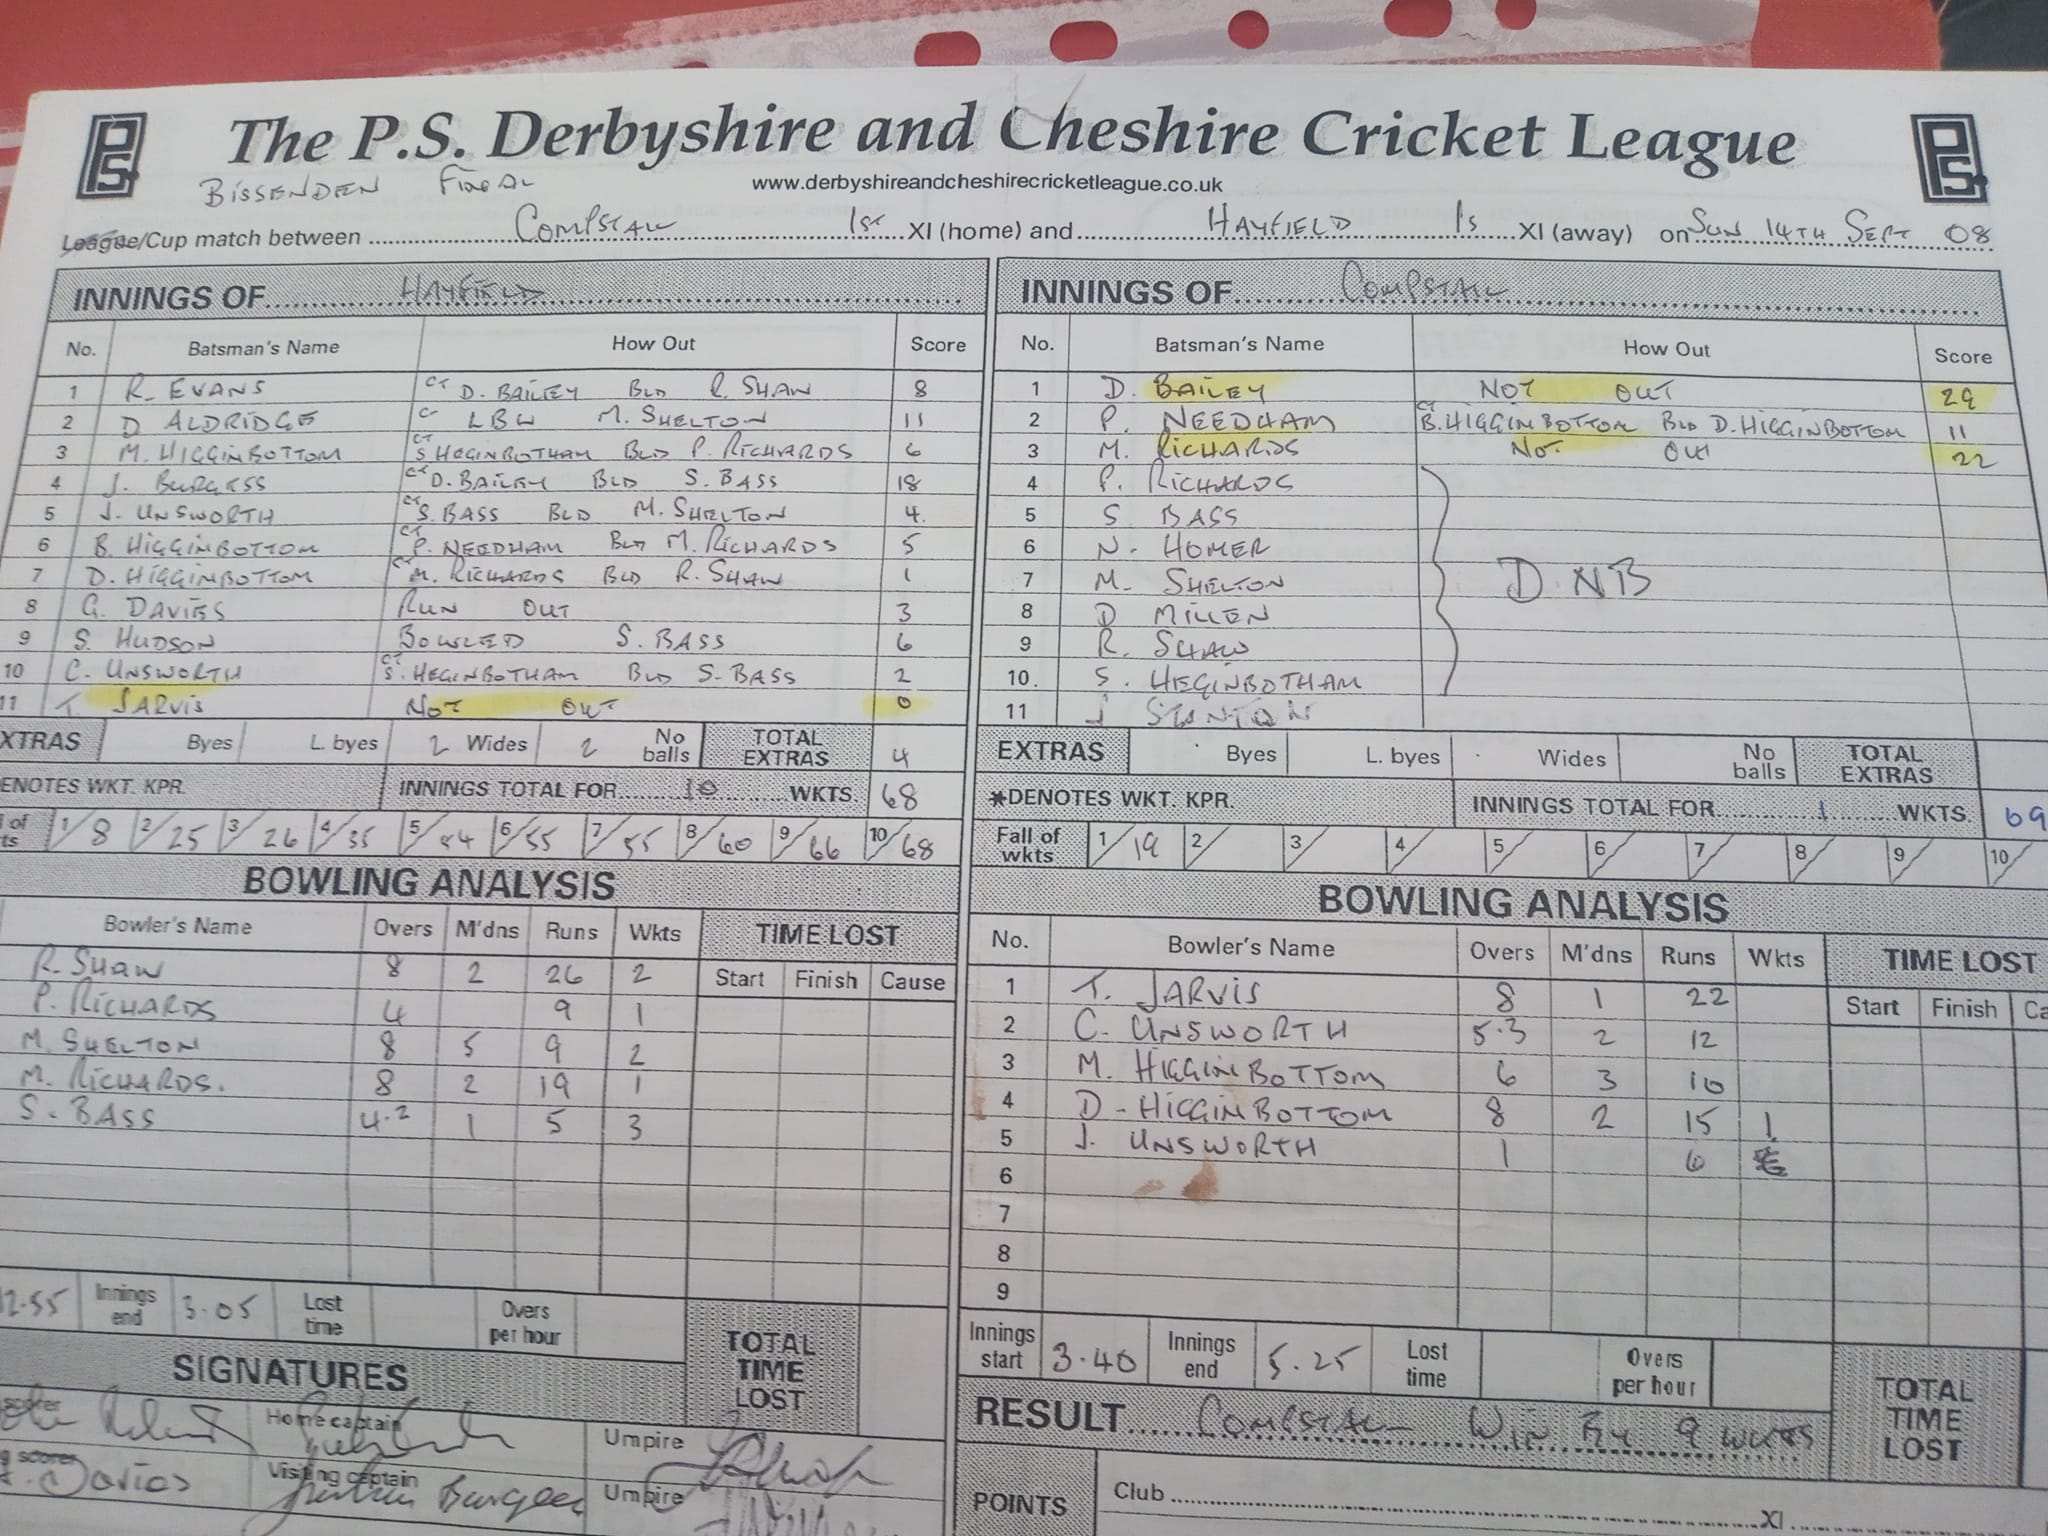 PS.
The P.S. Derbyshire and Cheshire Cricket League
PS.
BISSENDEN FINAL
www.derbyshireandcheshirecricketleague.co.uk
League/Cup match between COMPSTALL 1st XI (home) and HAYFIELD 1s XI (away) on SUN 14TH SEPT 08
INNINGS OF HAYFIELD
No. Batsman's Name How Out Score
1 R. EVANS CT D. BAILEY BLD R. SHAW 8
2 D ALDRIDGE LBW M. SHELTON 11
3 M. HIGGINBOTTOM CT S HEGINBOTHAM BLD P. RICHARDS 6
4 J. BURGESS CT D. BAILEY BLD S. BASS 18
5 J. UNSWORTH CT S. BASS BLD M. SHELTON 4.
6 B. HIGGINBOTTOM CT P. NEEDHAM BLD M. RICHARDS 5
7 D. HIGGINBOTTOM CT M. RICHARDS BLD R. SHAW 1
8 G. DAVIES RUN OUT 3
9 S. HUDSON BOWLED S. BASS 6
10 C. UNSWORTH CT S. HEGINBOTHAM BLD S. BASS 2
11 T. JARVIS NOT OUT 0
XTRAS Byes L. byes 2 Wides 2 No balls TOTAL EXTRAS 4
ENOTES WKT. KPR. INNINGS TOTAL FOR 10 WKTS. 68
l of ts 1/8 2/25 3/26 4/35 5/44 6/55 7/55 8/60 9/66 10/68
BOWLING ANALYSIS
Bowler's Name Overs M'dns Runs Wkts TIME LOST
Start Finish Cause
R. SHAW 8 2 26 2
P. RICHARDS 4 9 1
M. SHELTON 8 5 9 2
M. RICHARDS. 8 2 19 1
S. BASS 4.2 1 5 3
2.55 Innings end 3.05 Lost time Overs per hour TOTAL TIME LOST
SIGNATURES
Home captain Umpire
g scorer Davies Visiting captain Burgess Umpire
INNINGS OF COMPSTALL
No. Batsman's Name How Out Score
1 D. BAILEY NOT OUT 29
2 P. NEEDHAM CT B. HIGGINBOTTOM BLD D. HIGGINBOTTOM 11
3 M. RICHARDS NOT OUT 22
4 P. RICHARDS
5 S BASS
6 N. HOMER
7 M. SHELTON DNB
8 D MILLEN
9 R. SHAW
10. S. HEGINBOTHAM
11 J STANTON
EXTRAS Byes L. byes Wides No balls TOTAL EXTRAS
*DENOTES WKT. KPR. INNINGS TOTAL FOR 1 WKTS. 69
Fall of wkts 1/19 2/ 3/ 4/ 5/ 6/ 7/ 8/ 9/ 10/
BOWLING ANALYSIS
No. Bowler's Name Overs M'dns Runs Wkts TIME LOST
Start Finish Ca
1 T. JARVIS 8 1 22
2 C. UNSWORTH 5.3 2 12
3 M. HIGGINBOTTOM 6 3 10
4 D - HIGGINBOTTOM 8 2 15 1
5 J. UNSWORTH 1 6
6
7
8
9
Innings start 3.40 Innings end 5.25 Lost time Overs per hour TOTAL TIME LOST
RESULT COMPSTALL WIN BY 9 WKTS
POINTS Club XI